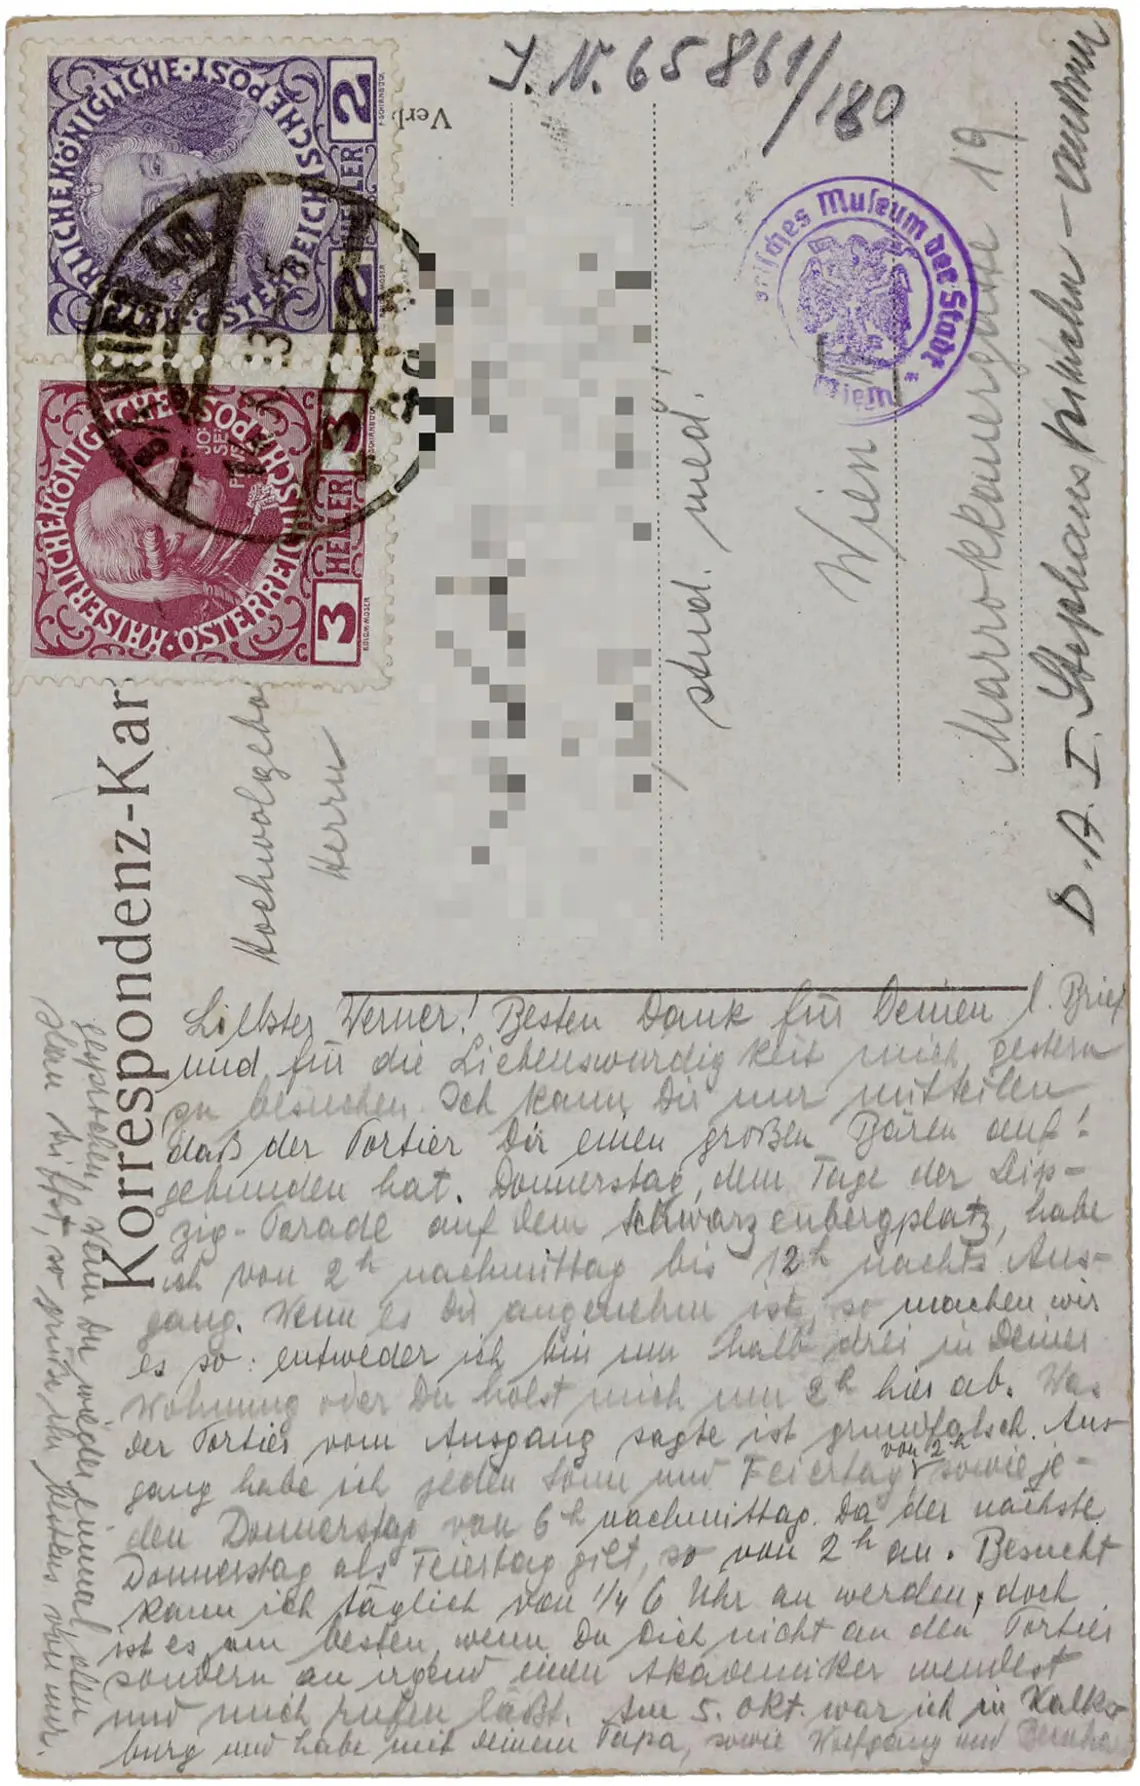 J. N. 65861/180
KAISERLICHE KÖNIGLICHE ÖSTERREICHISCHE POST
2 HELLER 2
KAISERLICHE KÖNIGLICHE ÖSTERREICHISCHE POST
3 HELLER 3
WIEN
Museum der Stadt Wien
Korrespondenz-Kar
Verb
Hochwolgebo
Herrn
stud. med.
Wien
Marrokkanergasse 19
D. A. I. Stephans
Liebster Werner! Besten Dank für Deinen l. Brief
und für die Liebenswürdigkeit mich gestern
zu besuchen. Ich kann Dir nur mitteilen
daß der Portier Dir einen großen Bären auf!
gebunden hat. Donnerstag, dem Tage der Leip-
zig-Parade auf dem Schwarzenbergplatz, habe
ich von 2h nachmittag bis 12h nachts Aus-
gang. Wenn es Dir angenehm ist, so machen wir
es so: entweder ich bin um halb drei in Deiner
Wohnung oder Du holst mich um 2h hier ab. Was
der Portier vom Ausgang sagte ist grundfalsch. Aus-
gang habe ich jeden Sonn und Feiertag von 2h sowie je-
den Donnerstag von 6h nachmittag. Da der nächste
Donnerstag als Feiertag gilt, so von 2h an. Besucht
kann ich täglich von 1/4 6 Uhr an werden, doch
ist es am besten, wenn Du Dich nicht an den Portier
sondern an irgend einen Akademiker wendest
und mich rufen läßt. Am 5. Okt. war ich in Kalks-
burg und habe mit deinem Papa, sowie Wolfgang und
gesprochen. Wenn Du wieder einmal den
trifft, so grüße ihn bestens von mir.